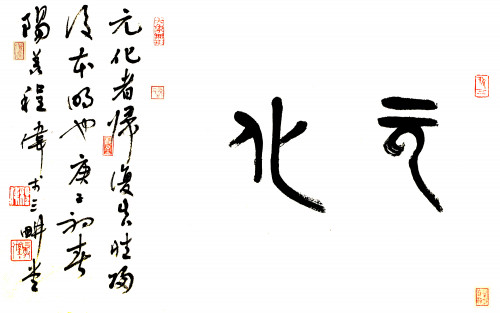 元化
元化者歸復性
本明也庚子初春
陽羨程偉於三畊堂